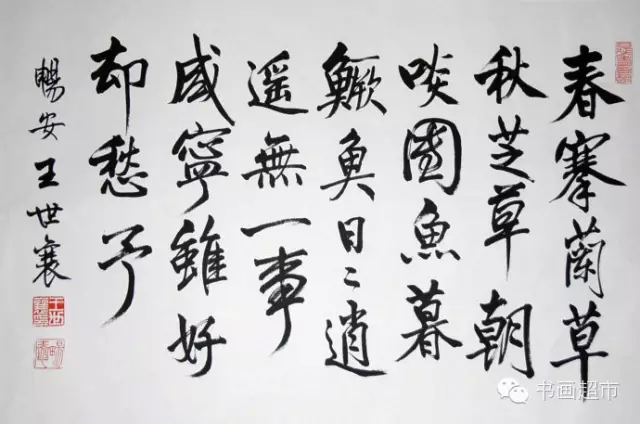 春搴蘭草
秋芝草朝
啖團魚暮
鱖魚日〻逍
遥無一事
咸寧雖好
却愁予
暢安王世襄
王世襄
书画超市